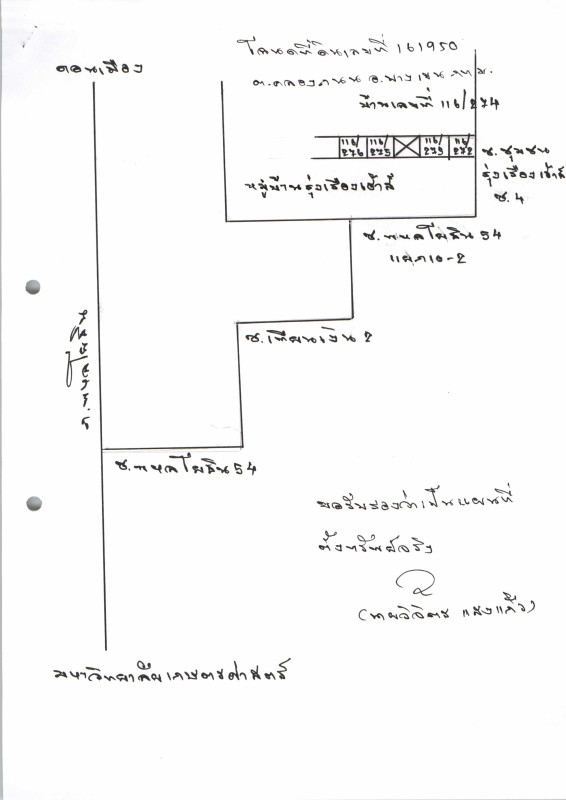 โฉนดที่ดินเลขที่ 161950
ดอนเมือง
ต.คลองถนน อ.บางเขน กทม.
บ้านเลขที่ 116/274
116/276
116/275
116/273
116/272
ซ.ชุมชน
รุ่งเรืองเฮ้าส์
ซ.4
หมู่บ้านรุ่งเรืองเฮ้าส์
ซ.พหลโยธิน 54
แยก 10-2
ซ.เทียนเงิน 2
ถ.พหลโยธิน
ซ.พหลโยธิน 54
ขอรับรองว่าเป็นแผนที่
ตั้งทรัพย์จริง
(นายวิจิตร แสงแก้ว)
มหาวิทยาลัยเกษตรศาสตร์